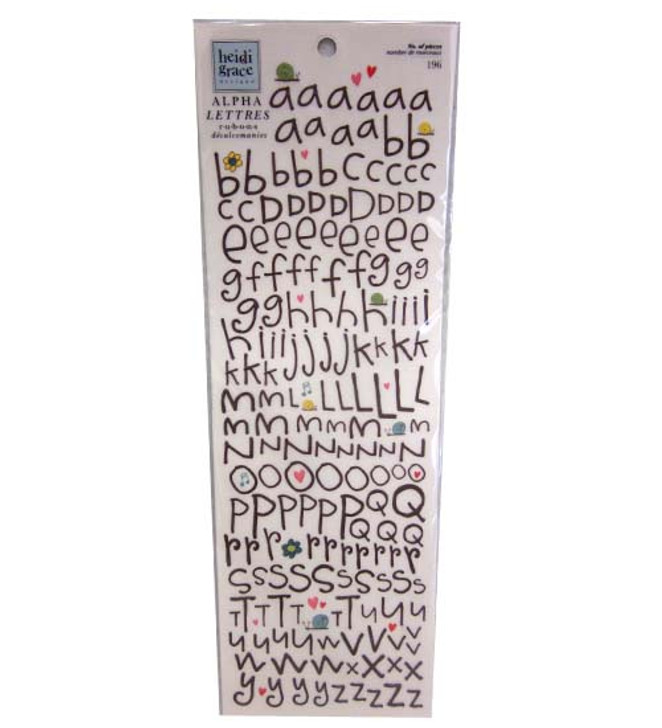 heidi
grace
DESIGNS
ALPHA
LETTRES
rubons
décalcomanies
No. of pieces
nombre de morceaux
196
a a a a a a
a a a a b b
b b b b b c c c c c
c c D D D D D D D D
e e e e e e e e e
g f f f f f f g g g
g g h h h h i i i i
h i i i j j j j k k k k
k k k
m m L L L L L L L L
m m m m m m m
N N N N N N N N
O O O O O O O O O
P P P P P P Q Q Q
Q Q Q
r r r r r r r r r
S S S S S S S S S S
T T T T T T u u u
u u u u w v v v v
w w w w x x x x
y y y y y z z z z z